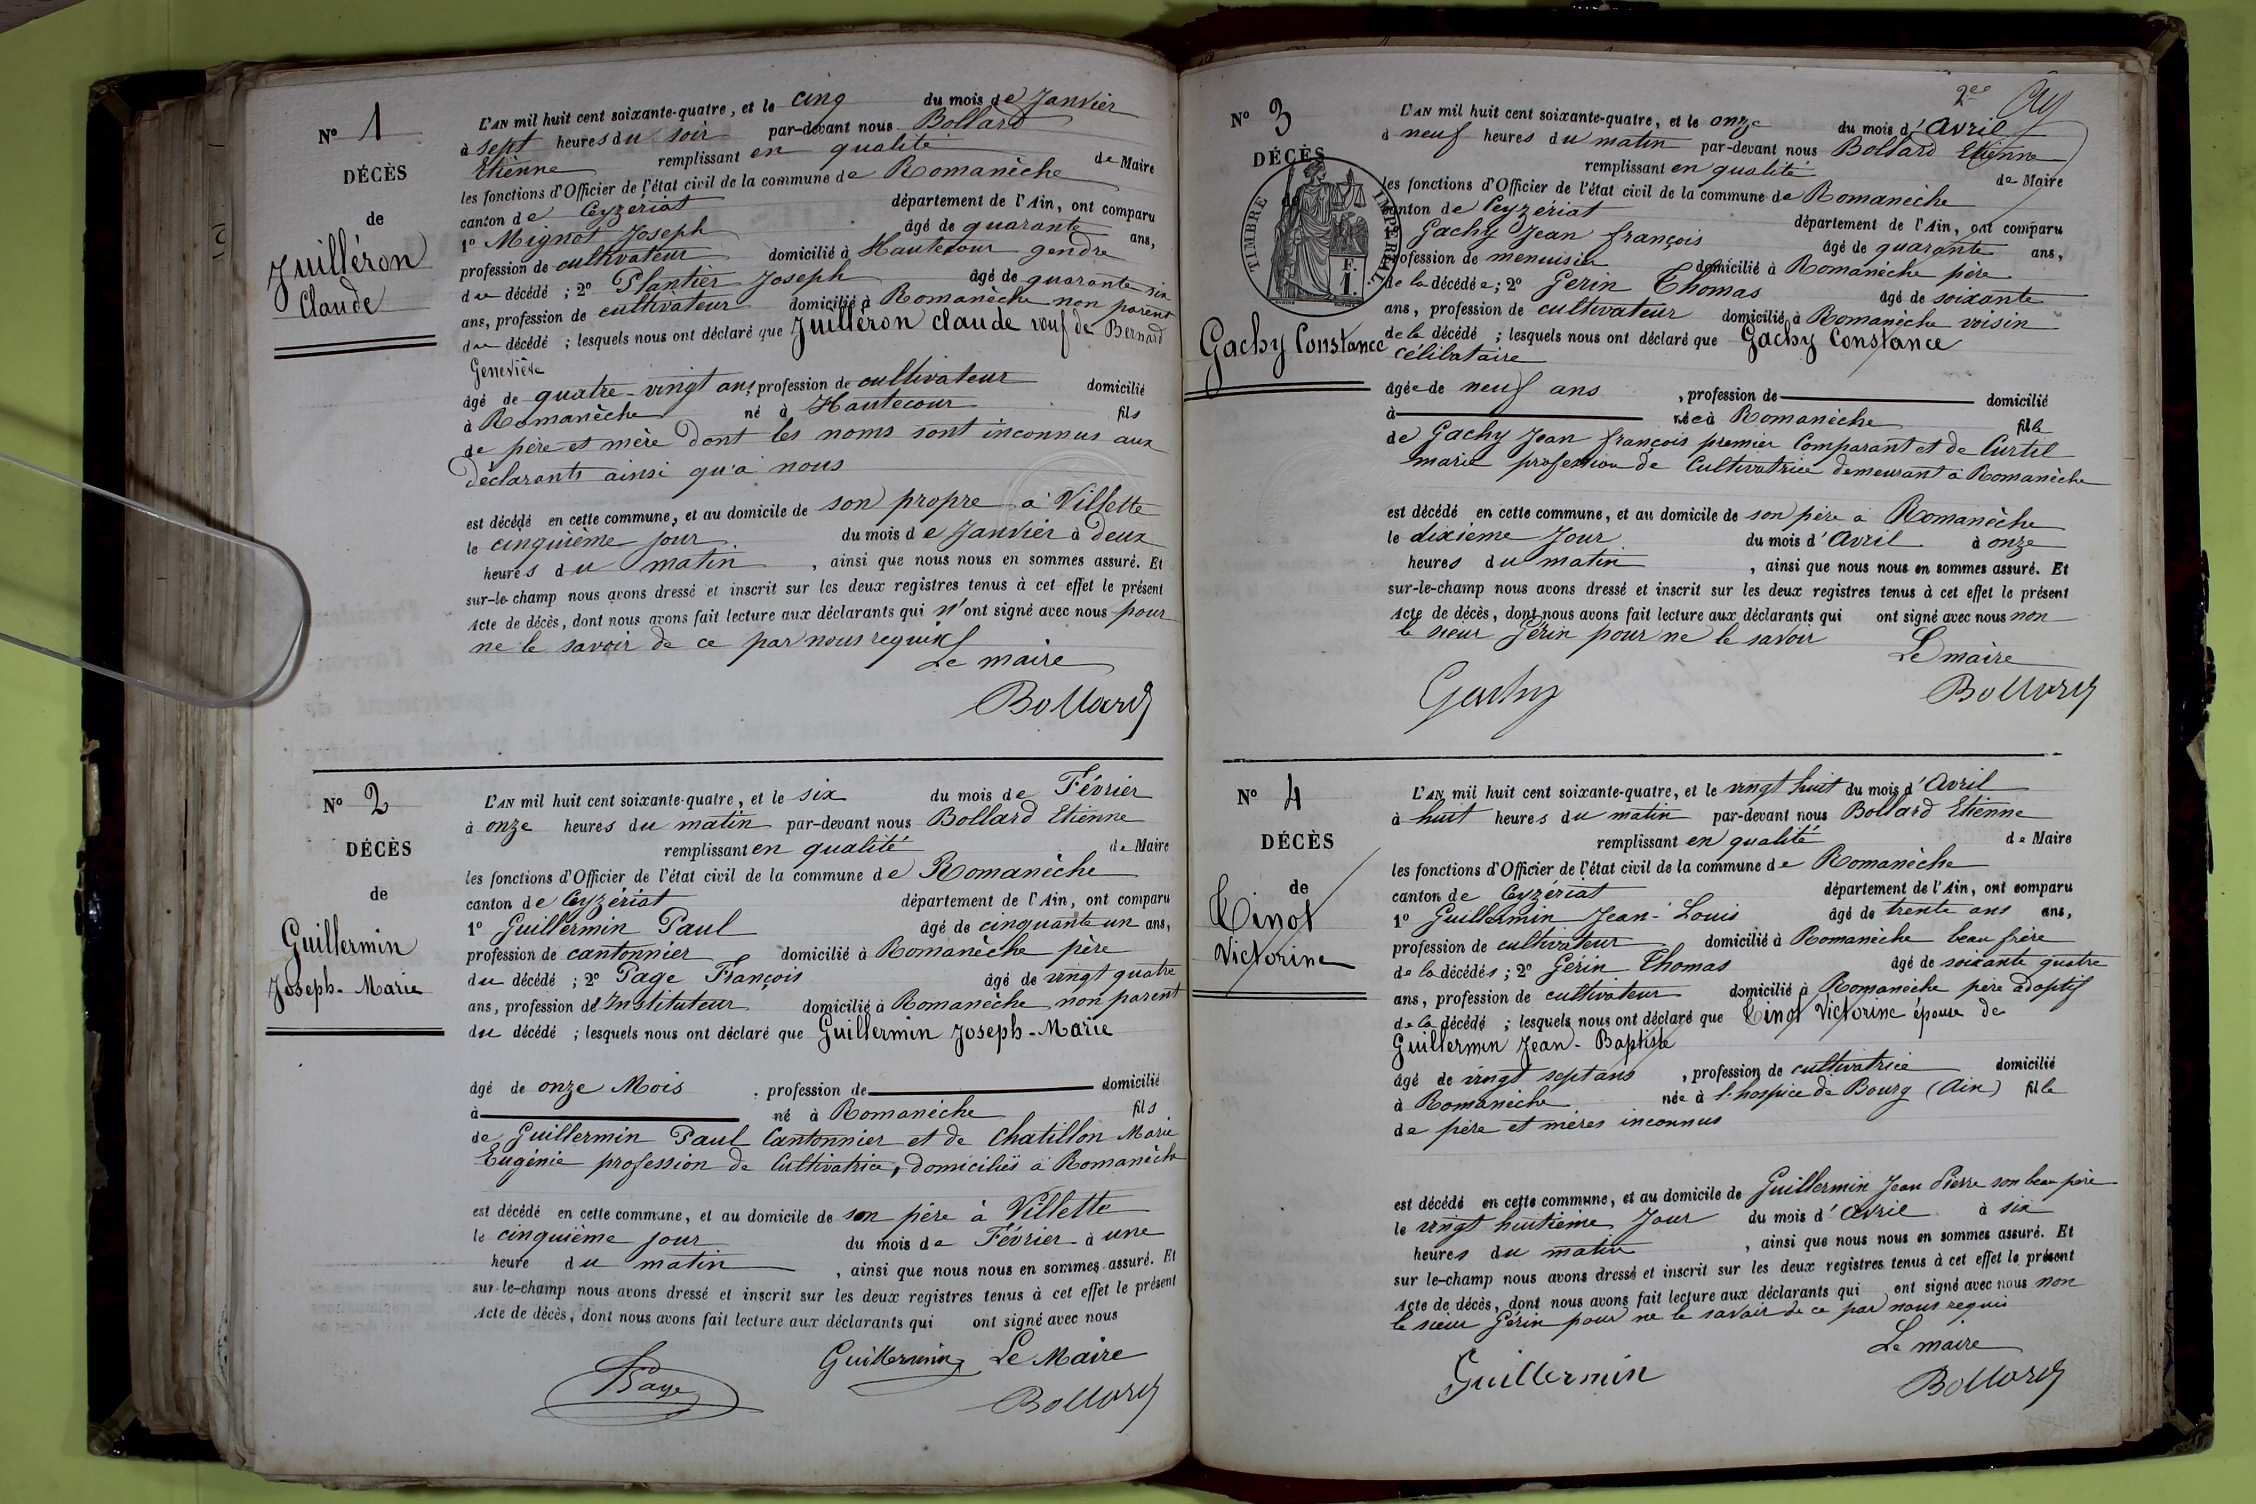 N° 1
DÉCÈS
de
Juilléron
Claude
L'AN mil huit cent soixante-quatre, et le cinq du mois de Janvier
à sept heures du soir par-devant nous Bollard
Etienne remplissant en qualité de Maire
les fonctions d'Officier de l'état civil de la commune de Romanèche
canton de Ceyzeriat département de l'Ain, ont comparu
1° Mignot Joseph âgé de quarante ans,
profession de cultivateur domicilié à Hautecour gendre
du décédé ; 2° Plantier Joseph âgé de quarante six
ans, profession de cultivateur domicilié à Romanèche non parent
du décédé ; lesquels nous ont déclaré que Juilléron claude veuf de Bernard
Geneviève
âgé de quatre-vingt ans, profession de cultivateur domicilié
à Romanèche né à Hautecour fils
de père et mère dont les noms sont inconnus aux
déclarants ainsi qu'à nous
est décédé en cette commune, et au domicile de son propre à Villette
le cinquième jour du mois de Janvier à deux
heures du matin, ainsi que nous nous en sommes assuré. Et
sur-le-champ nous avons dressé et inscrit sur les deux registres tenus à cet effet le présent
Acte de décès, dont nous avons fait lecture aux déclarants qui n'ont signé avec nous pour
ne le savoir de ce par nous requis
Le maire
Bollard
N° 2
DÉCÈS
de
Guillermin
Joseph-Marie
L'AN mil huit cent soixante-quatre, et le six du mois de Février
à onze heures du matin par-devant nous Bollard Etienne
remplissant en qualité de Maire
les fonctions d'Officier de l'état civil de la commune de Romanèche
canton de Ceyzériat département de l'Ain, ont comparu
1° Guillermin Paul âgé de cinquante un ans,
profession de cantonnier domicilié à Romanèche père
du décédé ; 2° Page François âgé de vingt quatre
ans, profession d'Instituteur domicilié à Romanèche non parent
du décédé ; lesquels nous ont déclaré que Guillermin Joseph-Marie
âgé de onze Mois, profession de domicilié
à né à Romanèche fils
de Guillermin Paul Cantonnier et de Chatillon Marie
Eugénie profession de Cultivatrice, domiciliés à Romanèche
est décédé en cette commune, et au domicile de son père à Villette
le cinquième jour du mois de Février à une
heure du matin, ainsi que nous nous en sommes assuré. Et
sur-le-champ nous avons dressé et inscrit sur les deux registres tenus à cet effet le présent
Acte de décès, dont nous avons fait lecture aux déclarants qui ont signé avec nous
Guillermin Le Maire
Page
Bollard
2ee
N° 3
DÉCÈS
TIMBRE IMPÉRIAL
F.
1.
Gachy Constance
L'AN mil huit cent soixante-quatre, et le onze du mois d'Avril
à neuf heures du matin par-devant nous Bollard Etienne
remplissant en qualité de Maire
les fonctions d'Officier de l'état civil de la commune de Romanèche
canton de Ceyzériat département de l'Ain, ont comparu
Gachy Jean françois âgé de quarante ans,
profession de menuisier domicilié à Romanèche père
de la décédée ; 2° Gerin Thomas âgé de soixante
ans, profession de cultivateur domicilié à Romanèche voisin
de la décédé ; lesquels nous ont déclaré que Gachy Constance
célibataire
âgée de neuf ans, profession de domicilié
à née à Romanèche fille
de Gachy Jean françois premier Comparant et de Curtil
marie profession de Cultivatrice demeurant à Romanèche
est décédé en cette commune, et au domicile de son père à Romanèche
le dixième Jour du mois d'Avril à onze
heures du matin, ainsi que nous nous en sommes assuré. Et
sur-le-champ nous avons dressé et inscrit sur les deux registres tenus à cet effet le présent
Acte de décès, dont nous avons fait lecture aux déclarants qui ont signé avec nous non
le sieur Gérin pour ne le savoir
Le maire
Gachy Bollard
N° 4
DÉCÈS
de
Tinot
Victorine
L'AN mil huit cent soixante-quatre, et le vingt huit du mois d'Avril
à huit heures du matin par-devant nous Bollard Etienne
remplissant en qualité de Maire
les fonctions d'Officier de l'état civil de la commune de Romanèche
canton de Ceyzériat département de l'Ain, ont comparu
1° Guillermin Jean-Louis âgé de trente ans ans,
profession de cultivateur domicilié à Romanèche beau frère
de la décédés ; 2° Gérin Thomas âgé de soixante quatre
ans, profession de cultivateur domicilié à Romanèche père adoptif
de la décédé ; lesquels nous ont déclaré que Tinot Victorine épouse de
Guillermin Jean-Baptiste
âgé de vingt sept ans, profession de cultivatrice domicilié
à Romanèche née à l'hospice de Bourg (Ain) fille
de père et mères inconnus
est décédé en cette commune, et au domicile de Guillermin Jean Pierre son beau père
le vingt huitième Jour du mois d'Avril à six
heures du matin, ainsi que nous nous en sommes assuré. Et
sur le-champ nous avons dressé et inscrit sur les deux registres tenus à cet effet le présent
Acte de décès, dont nous avons fait lecture aux déclarants qui ont signé avec nous non
le sieur Gérin pour ne le savoir de ce par nous requis
Le maire
Guillermin Bollard